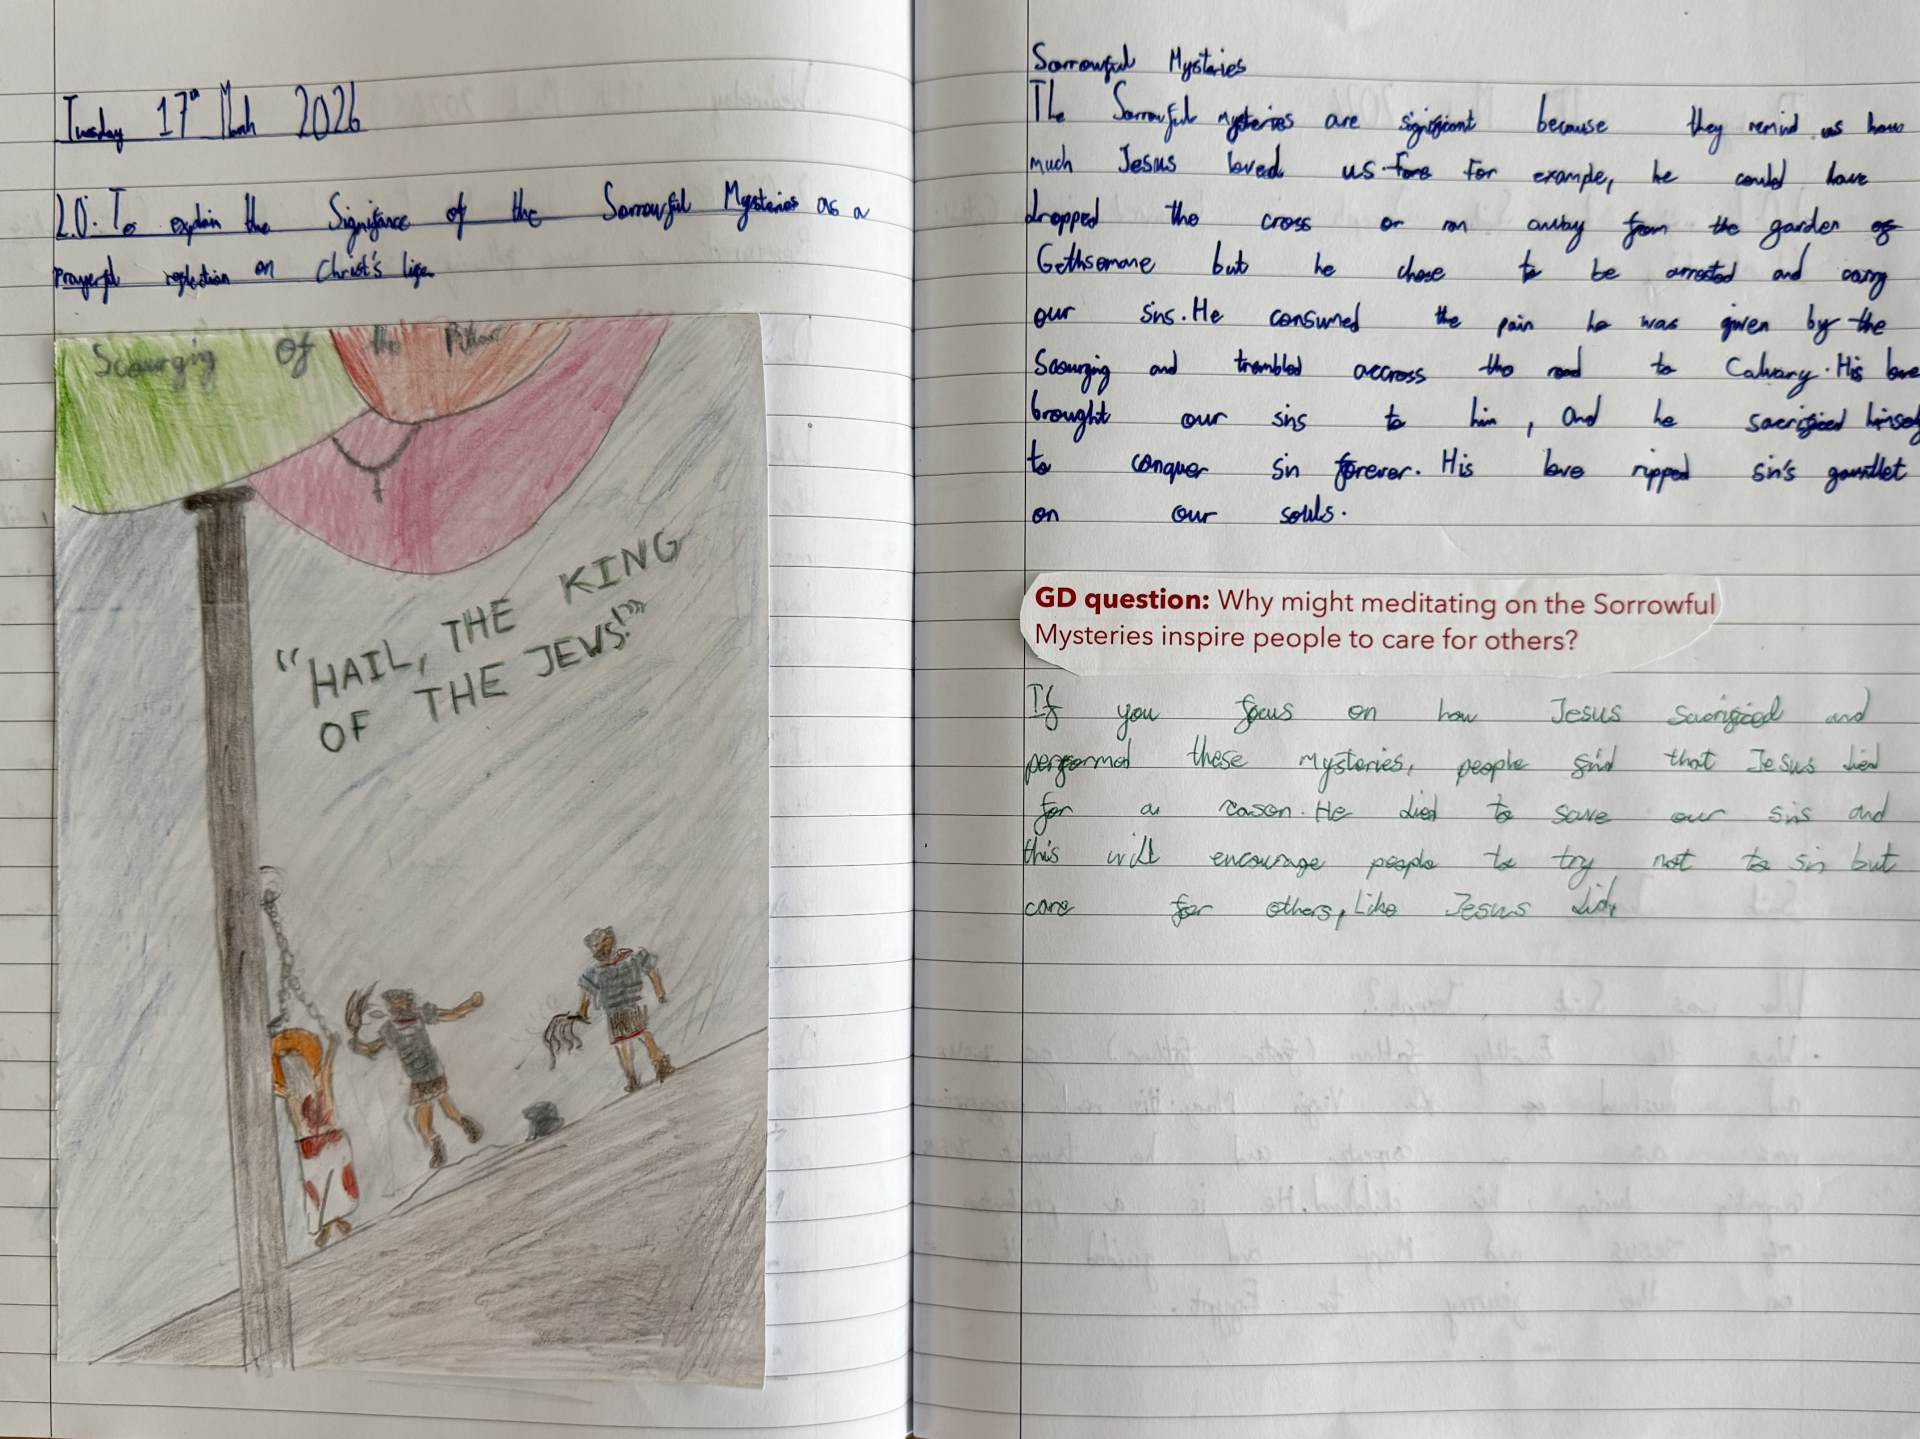 Tuesday 17th March 2026
L.O: To explain the Significance of the Sorrowful Mysteries as a
prayerful reflection on Christ's life
Scourgig of the Pillar
"HAIL, THE KING
OF THE JEWS!"
Sorrowful Mysteries
The Sorrowful mysteries are significant because they remind us how
much Jesus loved us. For example, he could have
dropped the cross or ran away from the garden of
Gethsemane but he chose to be arrested and carry
our sins. He consumed the pain he was given by the
Scourging and trembled accross the road to Calvary. His love
brought our sins to him, and he sacrificed himself
to conquer sin forever. His love ripped sin's gauntlet
on our souls.
GD question: Why might meditating on the Sorrowful
Mysteries inspire people to care for others?
If you focus on how Jesus sacrificed and
performed these mysteries, people find that Jesus died
for a reason. He died to save our sins and
this will encourage people to try not to sin but
care for others, like Jesus did.